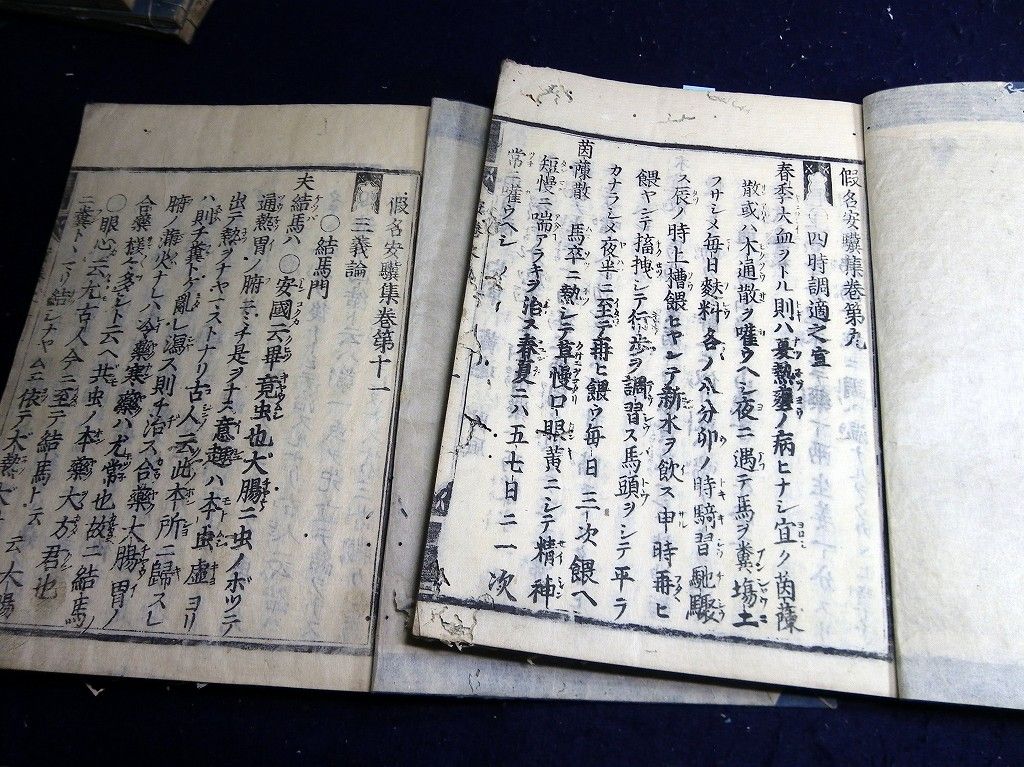 假名安驥集巻第九
四時調適之宜
春季大血ヲトル則ハ夏熱壅ノ病ヒナシ宜ク茵蔯
散或ハ木通散ヲ嚾ウヘシ夜ニ遇テ馬ヲ糞塲土ニ
フサシメ毎日麩料各ノ八分卯ノ時騎習馳驟
ス辰ノ時上槽餵ヒヤンテ新水ヲ飲ス申時再ヒ
餵ヤンテ搐拽シテ行歩ヲ調習ス馬頭ヲシテ平ラ
カナラシメ夜半ニ至テ再ヒ餵ウ毎日三次餵ヘ
茵蔯散 馬卒ニ熱シテ草慢口眼黄ニシテ精神
短慢ニ喘アラキヲ治ス春夏ニハ五七日ニ一次
常ニ嚾ウヘシ
假名安驥集巻第十一
三義論
〇結馬門
夫結馬ハ〇安國云畢竟虫也大腸ニ虫ノボツテ
通熱胃ノ腑ニ
虫テ熱ヲナヤマストナリ古人ノ云此本所ニ歸スレ
ハ則チ糞トケ亂レ瀉ス則チ治ス合藥大腸胃ノ
腑ノ ナレハ冷藥寒藥ハ尤常也故ニ結馬ノ
合藥様々多シト云ヘ共虫ノ本藥大方君也
〇眼心云尤古人今ニ至テ結馬ト云